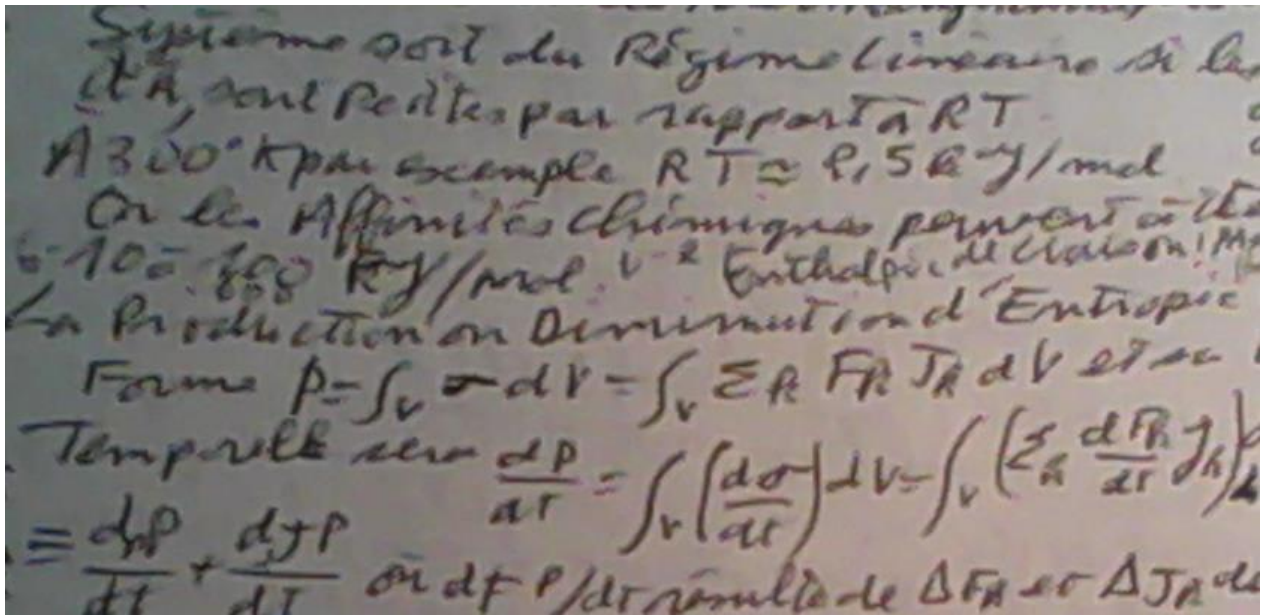 Système sort du Régime linéaire si les
sont Petites par rapport à RT
A 300°K par exemple RT ≃ 2,5 kJ/mol
Or les Affinités chimiques peuvent
10 à 100 kJ/mol. Enthalpie de liaison
La Production ou Diminution d'Entropie
Forme P = ∫v σ dV = ∫v Σk Fk Jk dV et sa
Temporelle sera dP/dt = ∫v (dσ/dt) dV = ∫v (Σk dFk/dt Jk)
≡ dP/dt + dJP/dt où dF P/dt résulte de ΔFk et ΔJk